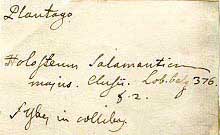 Plantago.
Holosteum Salamanticum
majus. Clusi. Lob. belg 376.
f. 2.
in collibus